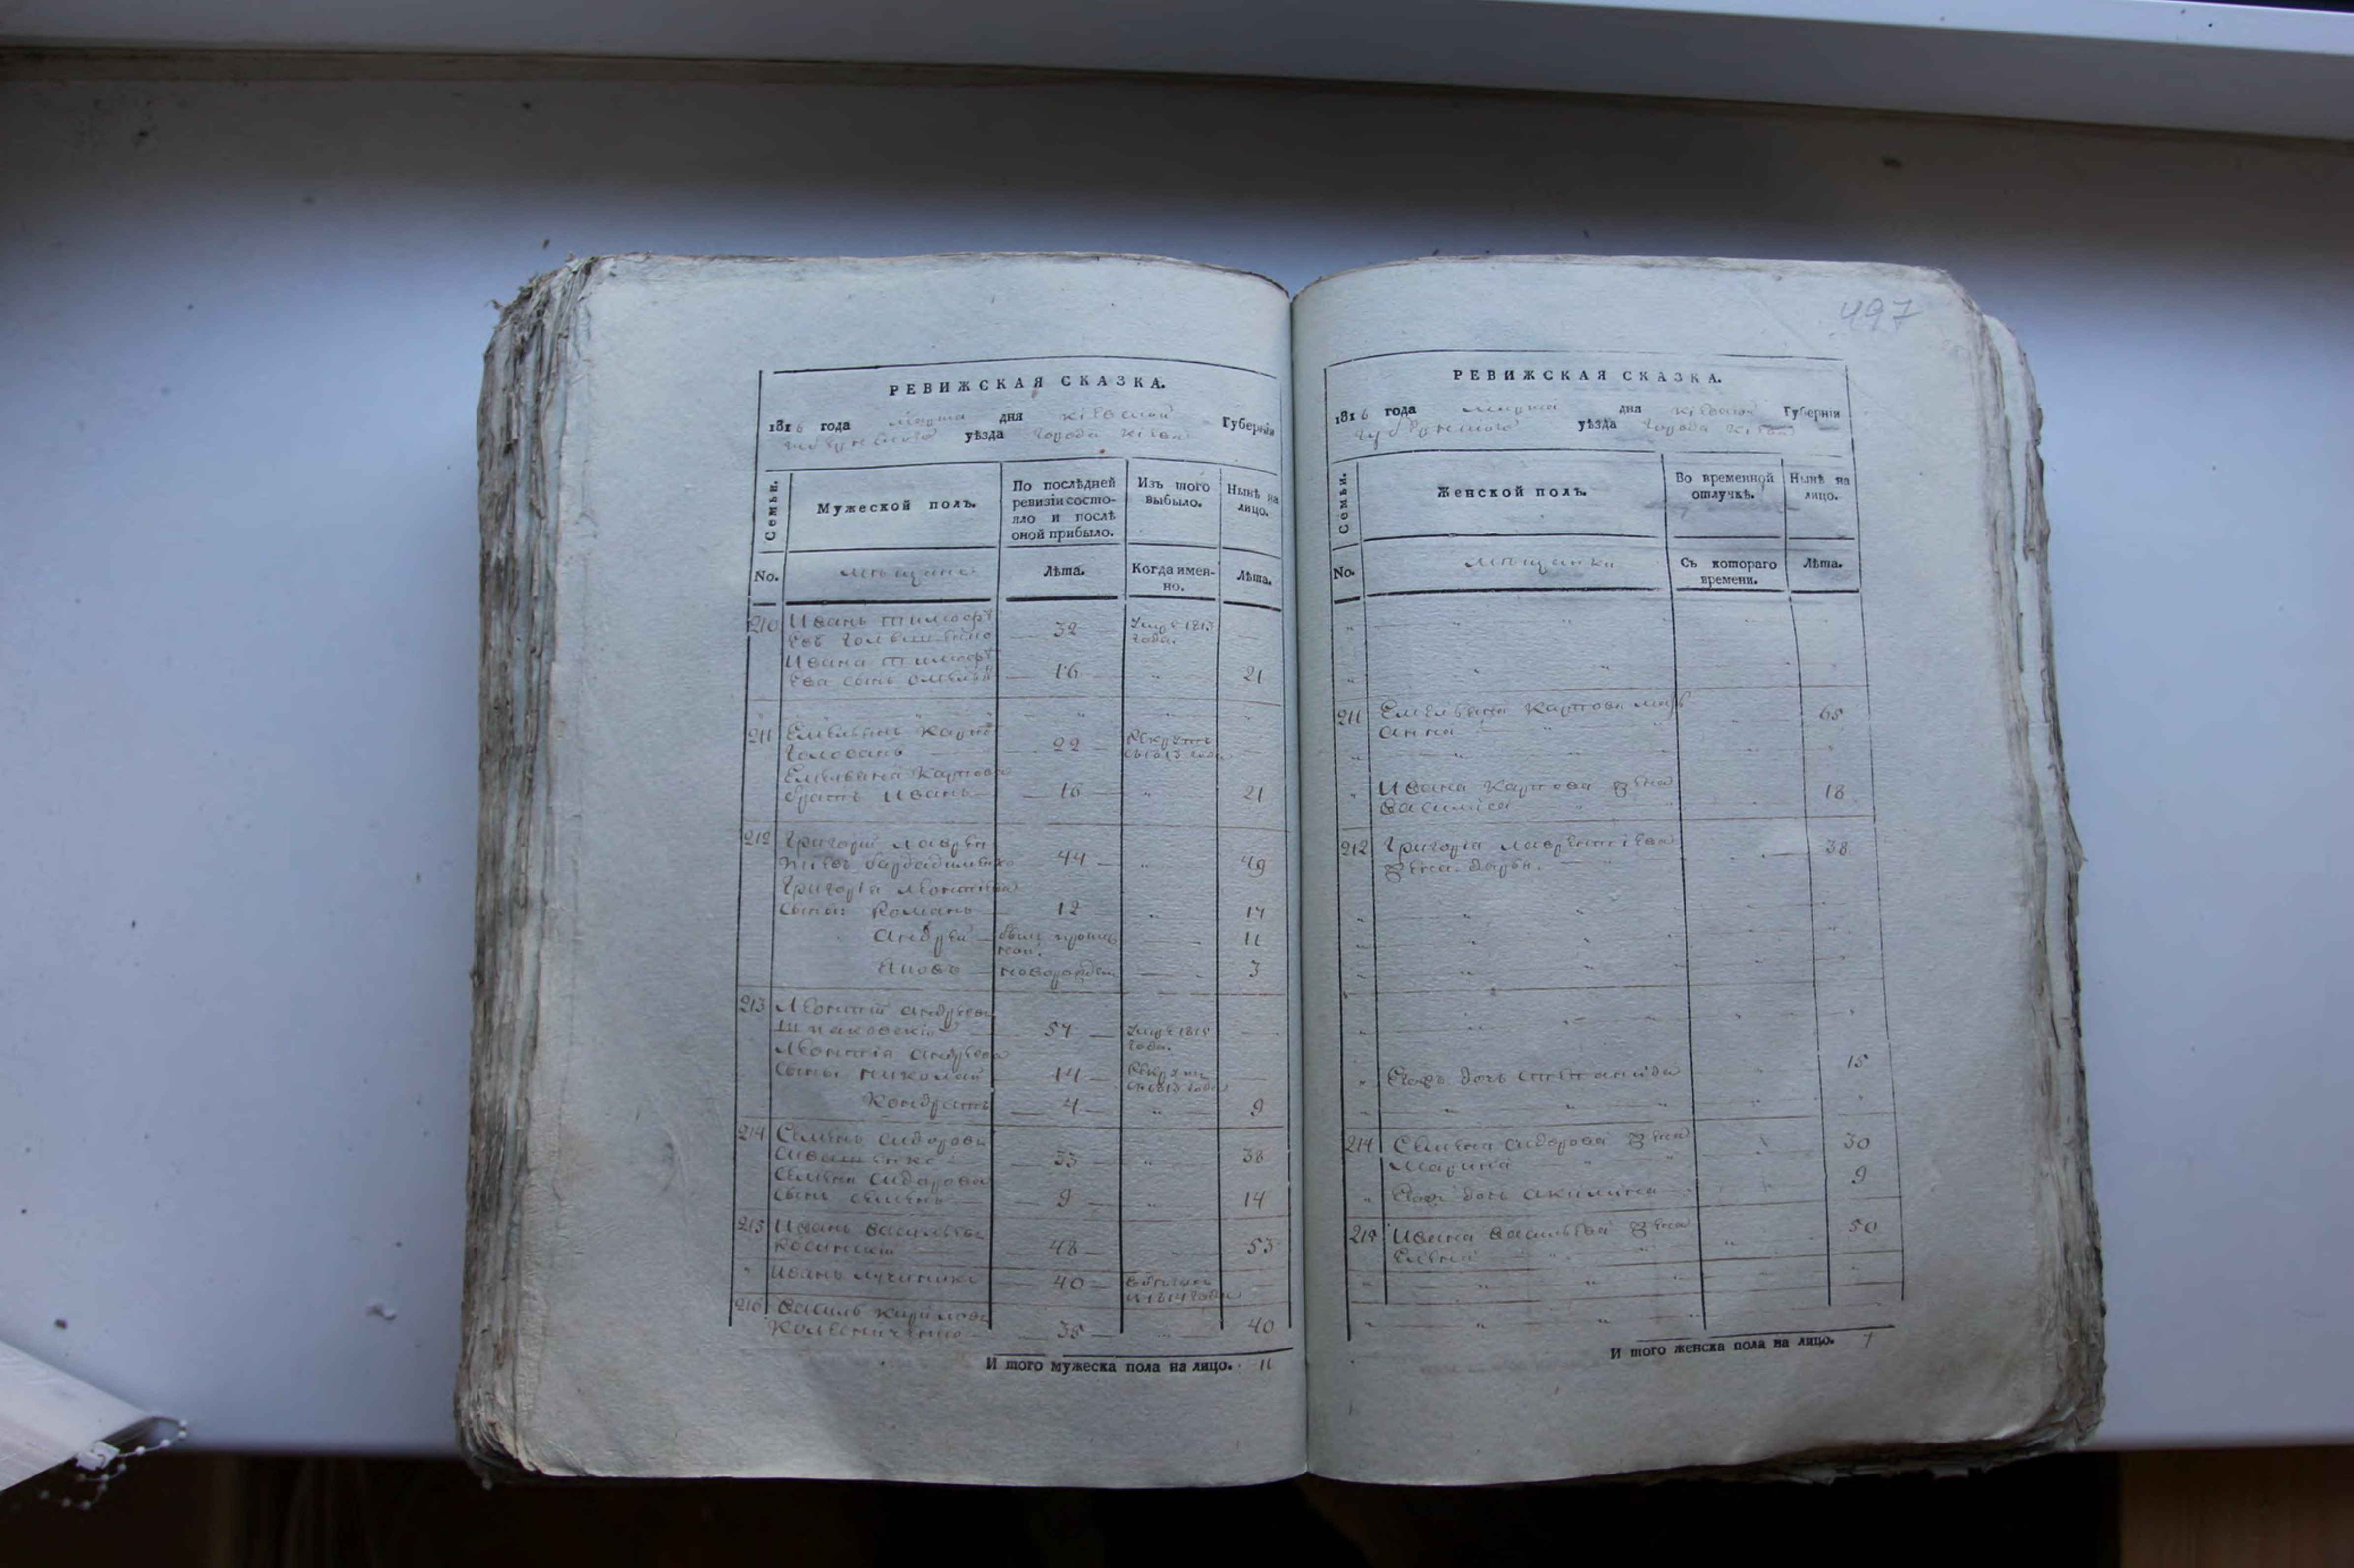 РЕВИЖСКАЯ СКАЗКА.
1816 года марта дня кіевской Губерніи
губернского уѣзда города кіева
Семьи.
Мужеской полъ.
По послѣдней ревизіи состояло и послѣ оной прибыло.
Изъ того выбыло.
Нынѣ на лицо.
No. мѣщане Лѣта. Когда именно. Лѣта.
210 Иванъ тимофѣ
евъ 32 умре 1813 года.
Ивана тимофѣ
ева сынъ 16 " 21
211 Емельянъ карпо
Голованъ 22 рекрутъ 1813 года
Емельяна Карпова
братъ Иванъ 16 " 21
212 Григорій лаврен
тіевъ 44 " 49
Григорія
сыны: Романъ 12 " 17
андрей 11
Яковъ новорожден 3
213 Леонтій андреевъ
Шпаковскій 57 умре 1815 года.
Леонтія андреева
сыны николай 14 рекрутъ 1813 года
Кондратъ 4 " 9
214 Семенъ сидоровъ
33 " 38
Семена сидорова
сынъ семенъ 9 " 14
215 Иванъ васильевъ
косинскій 48 53
" Иванъ 40
216 василь кириловъ
35 " 40
И того мужеска пола на лицо. 11
497
РЕВИЖСКАЯ СКАЗКА.
1816 года марта дня кіевской Губерніи
губернского уѣзда города кіева
Семьи.
Женской полъ.
Во временной отлучкѣ.
Нынѣ на лицо.
No. мѣщанки Съ котораго времени. Лѣта.
211 Емельяна карпова мать
анна 65
" Ивана Карпова жена
василиса 18
212 Григорія лаврентіева
жена дарья. 38
" Его дочь степанида 15
214 Семена сидорова жена
Марина 30
" Его дочь акилина 9
215 Ивана васильева жена
Елена 50
И того женска пола на лицо. 7